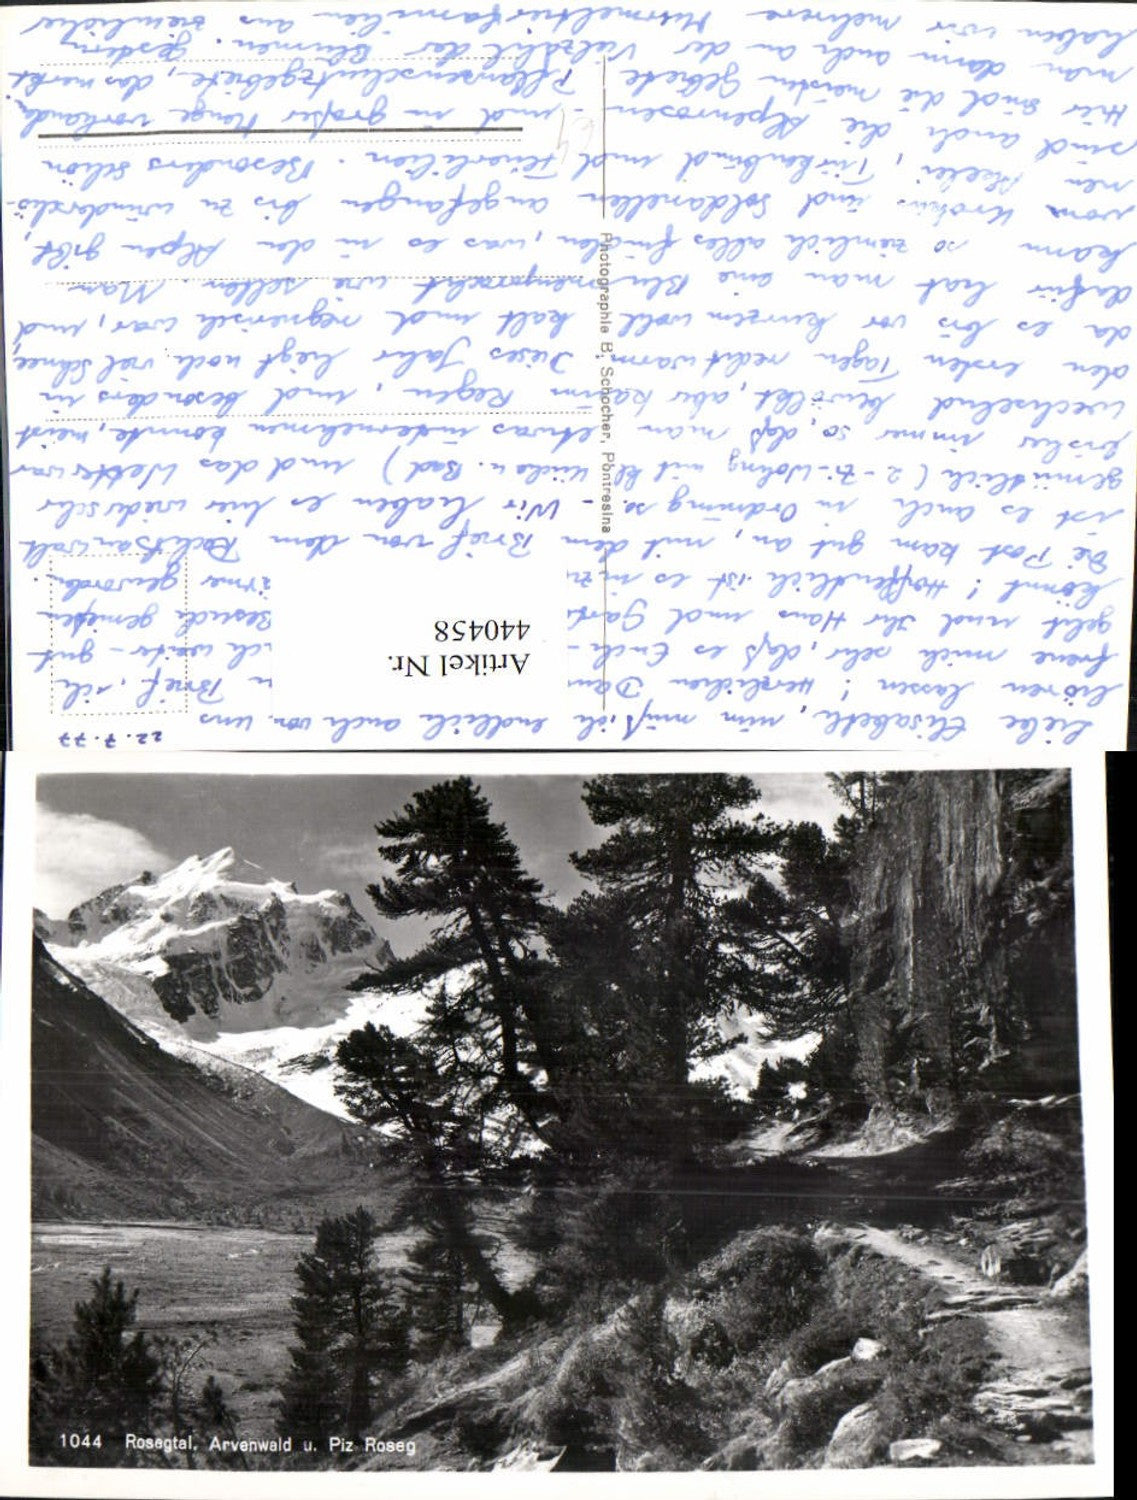 22.7.77
Liebe Elisabeth, nun muß ich endlich auch von uns
hören lassen! Herzlichen Brief, ich
freue mich sehr, daß es Euch weiter gut
geht und Ihr Hans und Besuch genießen
könnt! Hoffentlich ist es geworden.
Die Post kam gut an, mit dem Brief von dem Rechtsanwalt
ist es auch in Ordnung so. - Wir haben es hier wieder sehr
gemütlich (2-Zi-Wohng mit kl. Küche u. Bad) und das Wetter war
bisher immer so, daß man etwas unternehmen konnte, meist
wechselnd bewölkt, aber kaum Regen, und besonders in
den ersten Tagen recht warm. Dieses Jahr liegt noch viel Schnee
da es bis vor kurzem wohl kalt und regnerisch war, und
dafür hat man eine Blumenpracht wie selten. Man
kann so ziemlich alles finden, was es in den Alpen gibt,
vom Krokus und Soldanellen angefangen bis zu wunderschö-
nen Türkenbund und Feuerlilien. Besonders schön
sind auch die Alpenrosen und in großer Menge vorhanden
Hier sind die meisten Gebiete Pflanzenschutzgebiete, das merkt
man dann auch an der Vielzahl der Blumen. Gestern
haben wir mehrere Murmeltierfamilien aus ziemlicher
Artikel Nr.
440458
Photographie B. Schocher, Pontresina
1044 Rosegtal, Arvenwald u. Piz Roseg